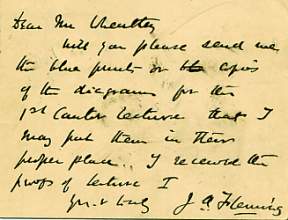 Dear Mr Wheatley
Will you please send me
the blue prints or copies
of the diagrams for the
1st Cantor Lecture that I
may put them in their
proper place. I received the
proofs of Lecture I
J A Fleming